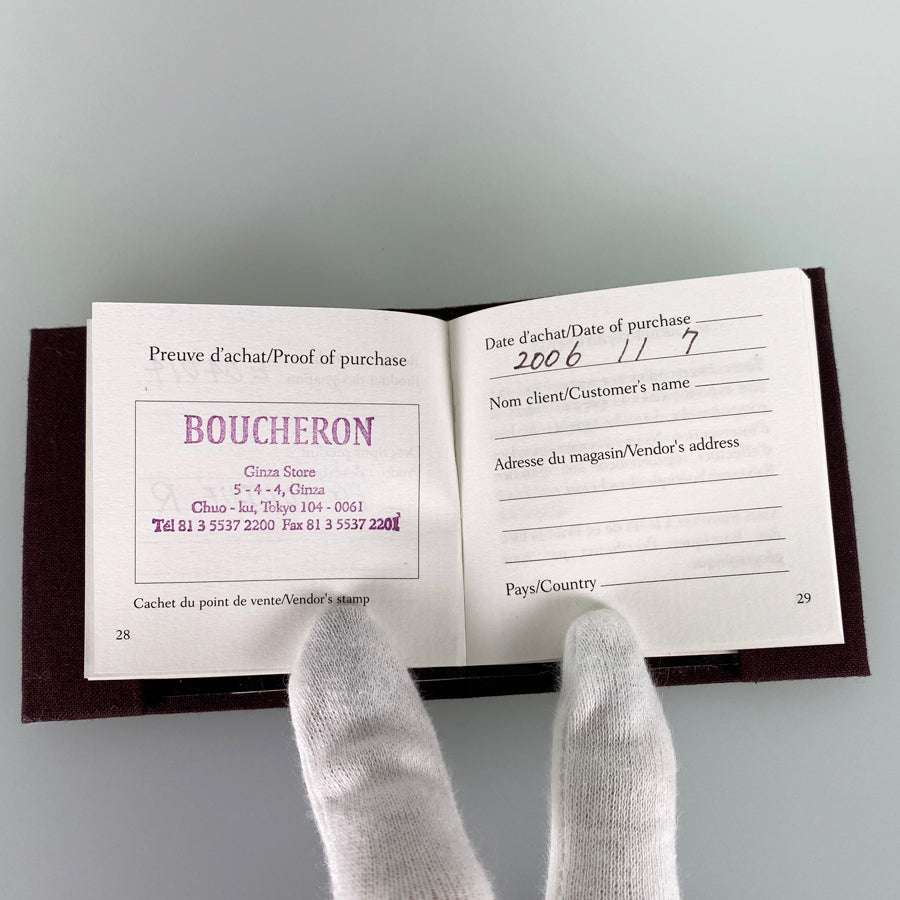 Preuve d'achat/Proof of purchase
BOUCHERON
Ginza Store
5 - 4 - 4, Ginza
Chuo - ku, Tokyo 104 - 0061
Tél 81 3 5537 2200 Fax 81 3 5537 2201
Cachet du point de vente/Vendor's stamp
28
Date d'achat/Date of purchase
2006 11 7
Nom client/Customer's name
Adresse du magasin/Vendor's address
Pays/Country
29